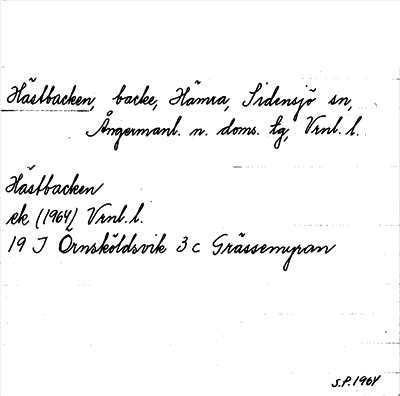 Hästbacken, backe, Hämra, Sidensjö sn,
Ångermanl. n. doms. tg, Vrnl. l.
Hästbacken
ek (1964) Vrnl. l.
19 J Örnsköldsvik 3 c Grässemyran
S.P. 1964